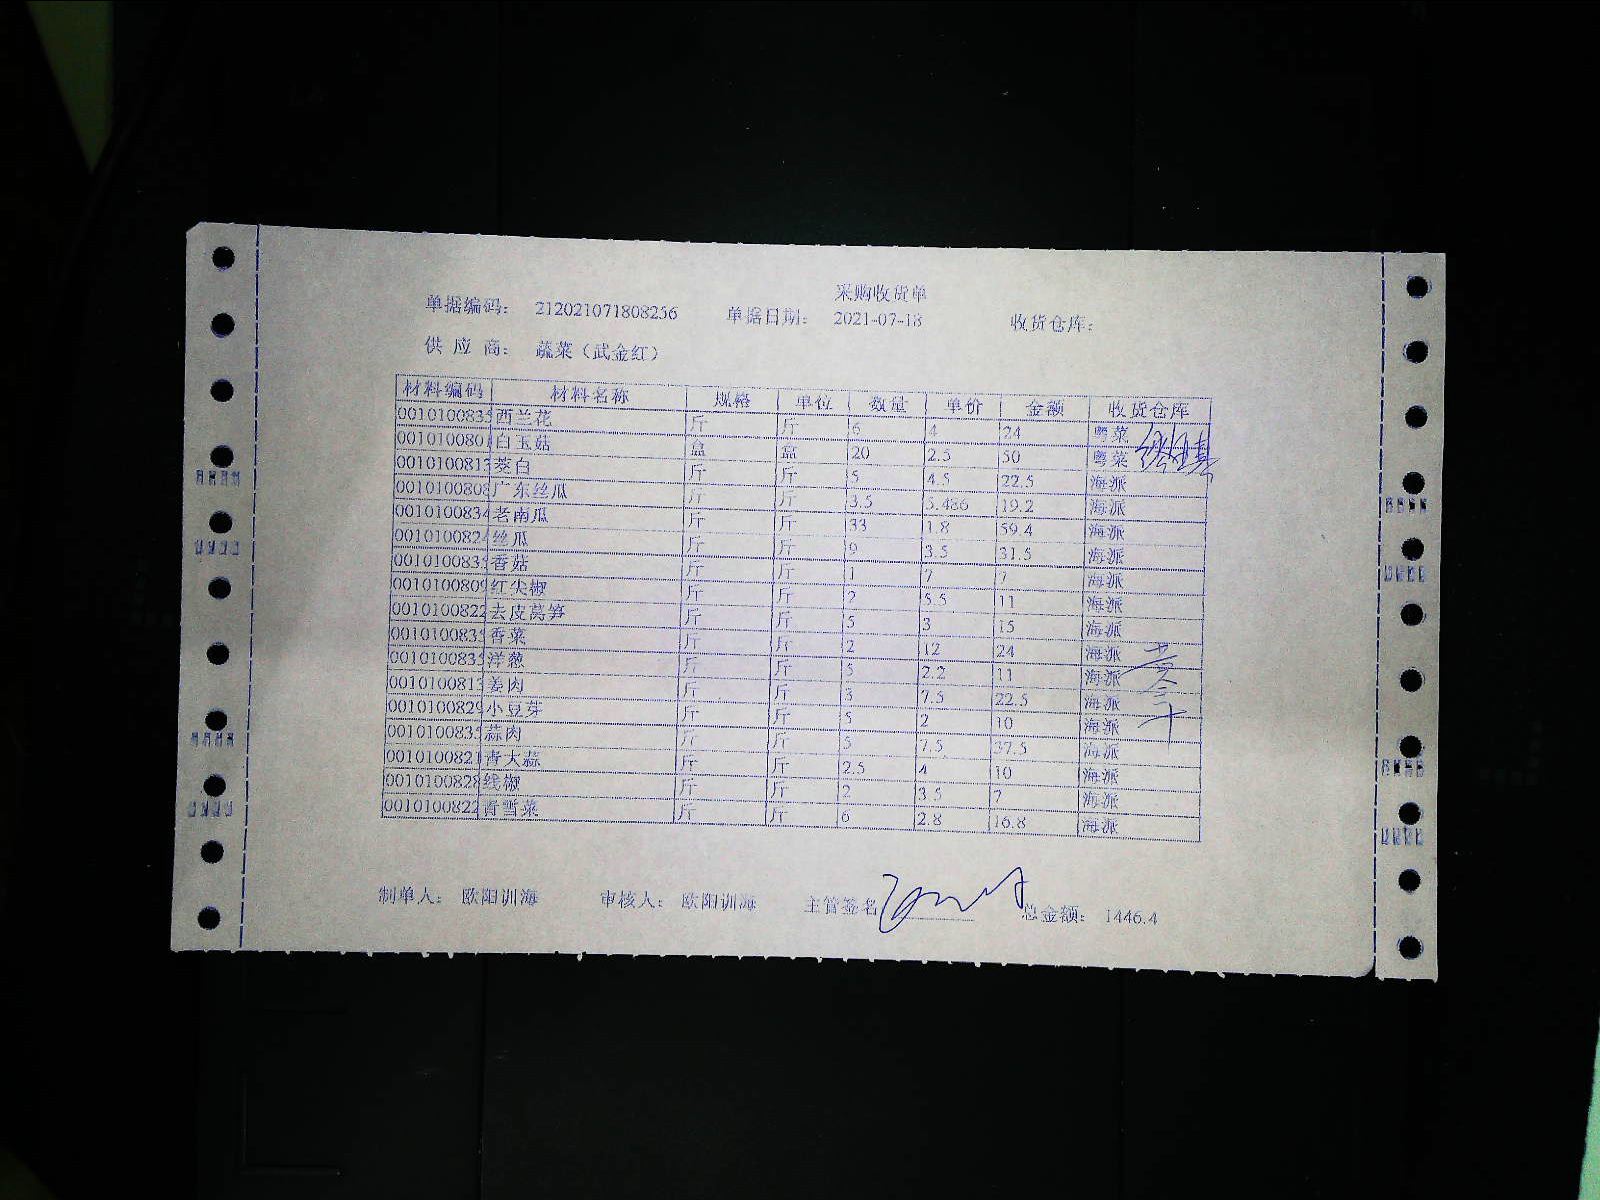 采购收货单
单据编码： 212021071808256 单据日期： 2021-07-18 收货仓库：
供 应 商： 蔬菜（武金红）
材料编码 材料名称 规格 单位 数量 单价 金额 收货仓库
0010100835 西兰花 斤 斤 6 4 24 粤菜
001010080 白玉菇 盒 盒 20 2.5 50 粤菜
001010081 茭白 斤 斤 5 4.5 22.5 海派
0010100808 广东丝瓜 斤 斤 3.5 5.486 19.2 海派
0010100834 老南瓜 斤 斤 33 1.8 59.4 海派
001010082 丝瓜 斤 斤 9 3.5 31.5 海派
001010083 香菇 斤 斤 1 7 7 海派
0010100809 红尖椒 斤 斤 2 5.5 11 海派
0010100822 去皮莴笋 斤 斤 5 3 15 海派
001010083 香菜 斤 斤 2 12 24 海派
001010083 洋葱 斤 斤 5 2.2 11 海派
001010081 姜肉 斤 斤 3 7.5 22.5 海派
0010100829 小豆芽 斤 斤 5 2 10 海派
001010083 蒜肉 斤 斤 5 7.5 37.5 海派
001010082 青大蒜 斤 斤 2.5 4 10 海派
0010100828 线椒 斤 斤 2 3.5 7 海派
0010100822 青雪菜 斤 斤 6 2.8 16.8 海派
制单人： 欧阳训海 审核人： 欧阳训海 主管签名 总金额： 1446.4